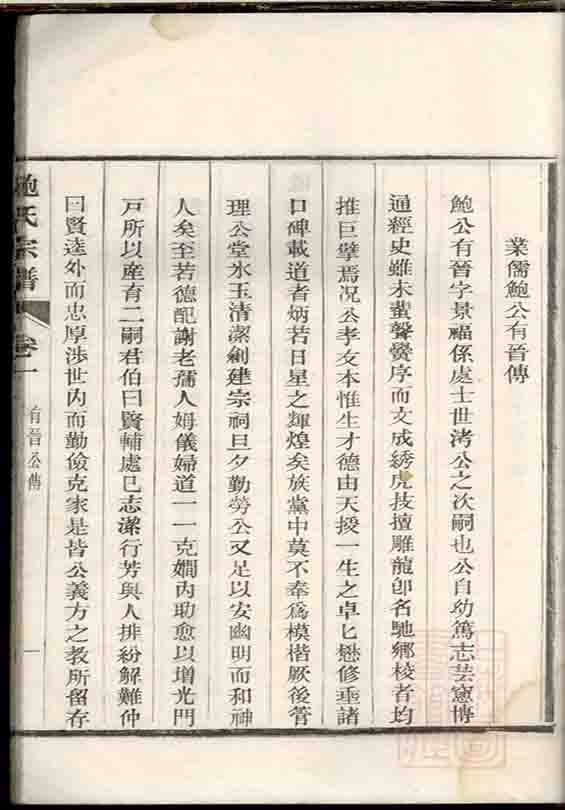 業儒鮑公有晉傳
鮑公有晉字景福係處士世濤公之次嗣也公自幼篤志芸窻博
通經史雖未蜚聲黌序而文成綉虎技擅雕龍卽名馳鄉校者均
推巨擘焉况公孝友本惟生才德由天授一生之卓匕懋修垂諸
口碑載道者炳若日星之輝煌矣族黨中莫不奉爲模楷厥後管
理公堂氷玉清潔創建宗祠旦夕勤勞公又足以安幽明而和神
人矣至若德配謝老孺人姆儀婦道一一克嫺內助愈以增光門
戸所以産育二嗣君伯曰賢輔處已志潔行芳與人排紛解難仲
曰賢逵外而忠厚涉世內而勤儉克家是皆公義方之敎所留存
鮑氏宗譜
卷一
有晉公傳
一